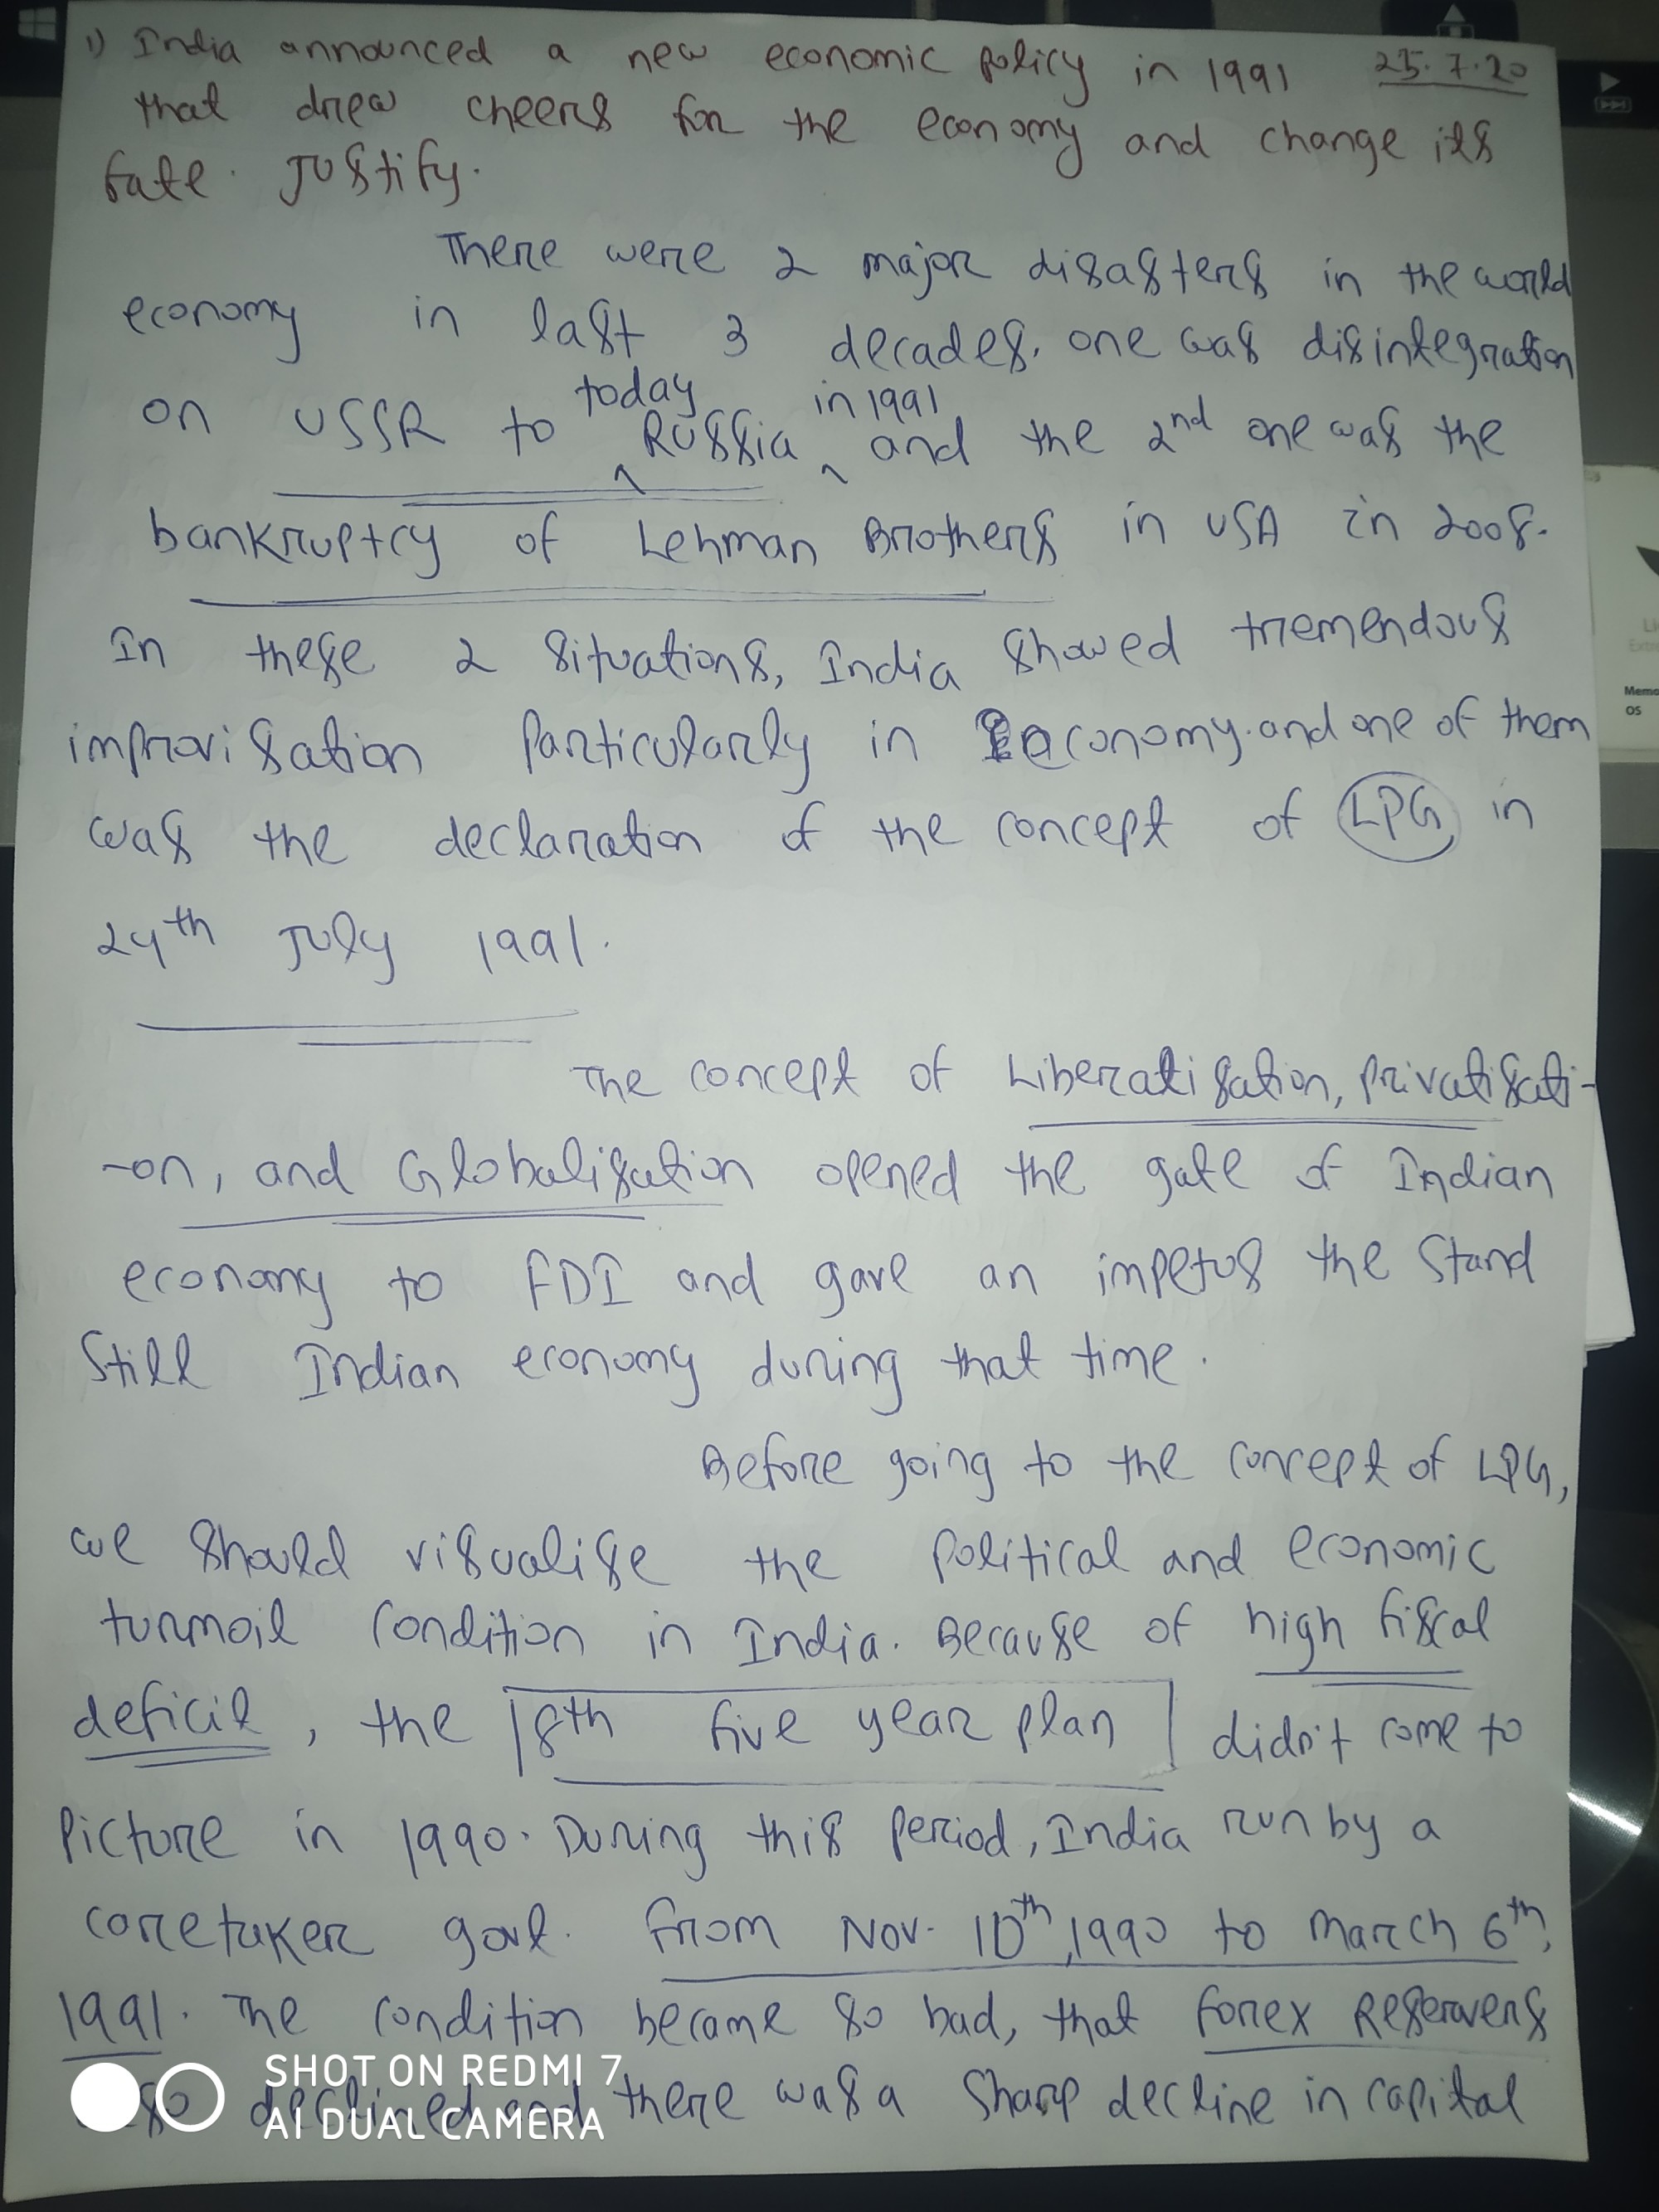 1) India announced a new economic policy in 1991 25.7.20
that drew cheers for the economy and change its
fate. Justify.
There were 2 major disasters in the world
economy in last 3 decades. one was disintegration
on USSR to today Russia in 1991 and the 2nd one was the
bankruptcy of Lehman Brothers in USA in 2008.
In these 2 situations, India showed tremendous
improvisation particularly in economy. and one of them
was the declaration of the concept of LPG in
24th July 1991.
The concept of Liberalisation, privatisati-
-on, and Globalisation opened the gate of Indian
economy to FDI and gave an impetus the stand
still Indian economy during that time.
Before going to the concept of LPG,
we should visualise the political and economic
turmoil condition in India. Because of high fiscal
deficit, the 8th five year plan didn't come to
picture in 1990. During this period, India run by a
caretaker govt. from Nov. 10th, 1990 to March 6th,
1991. The condition became so bad, that forex Reservers
also declined and there was a sharp decline in capital
SHOT ON REDMI 7
AI DUAL CAMERA
Memo
OS